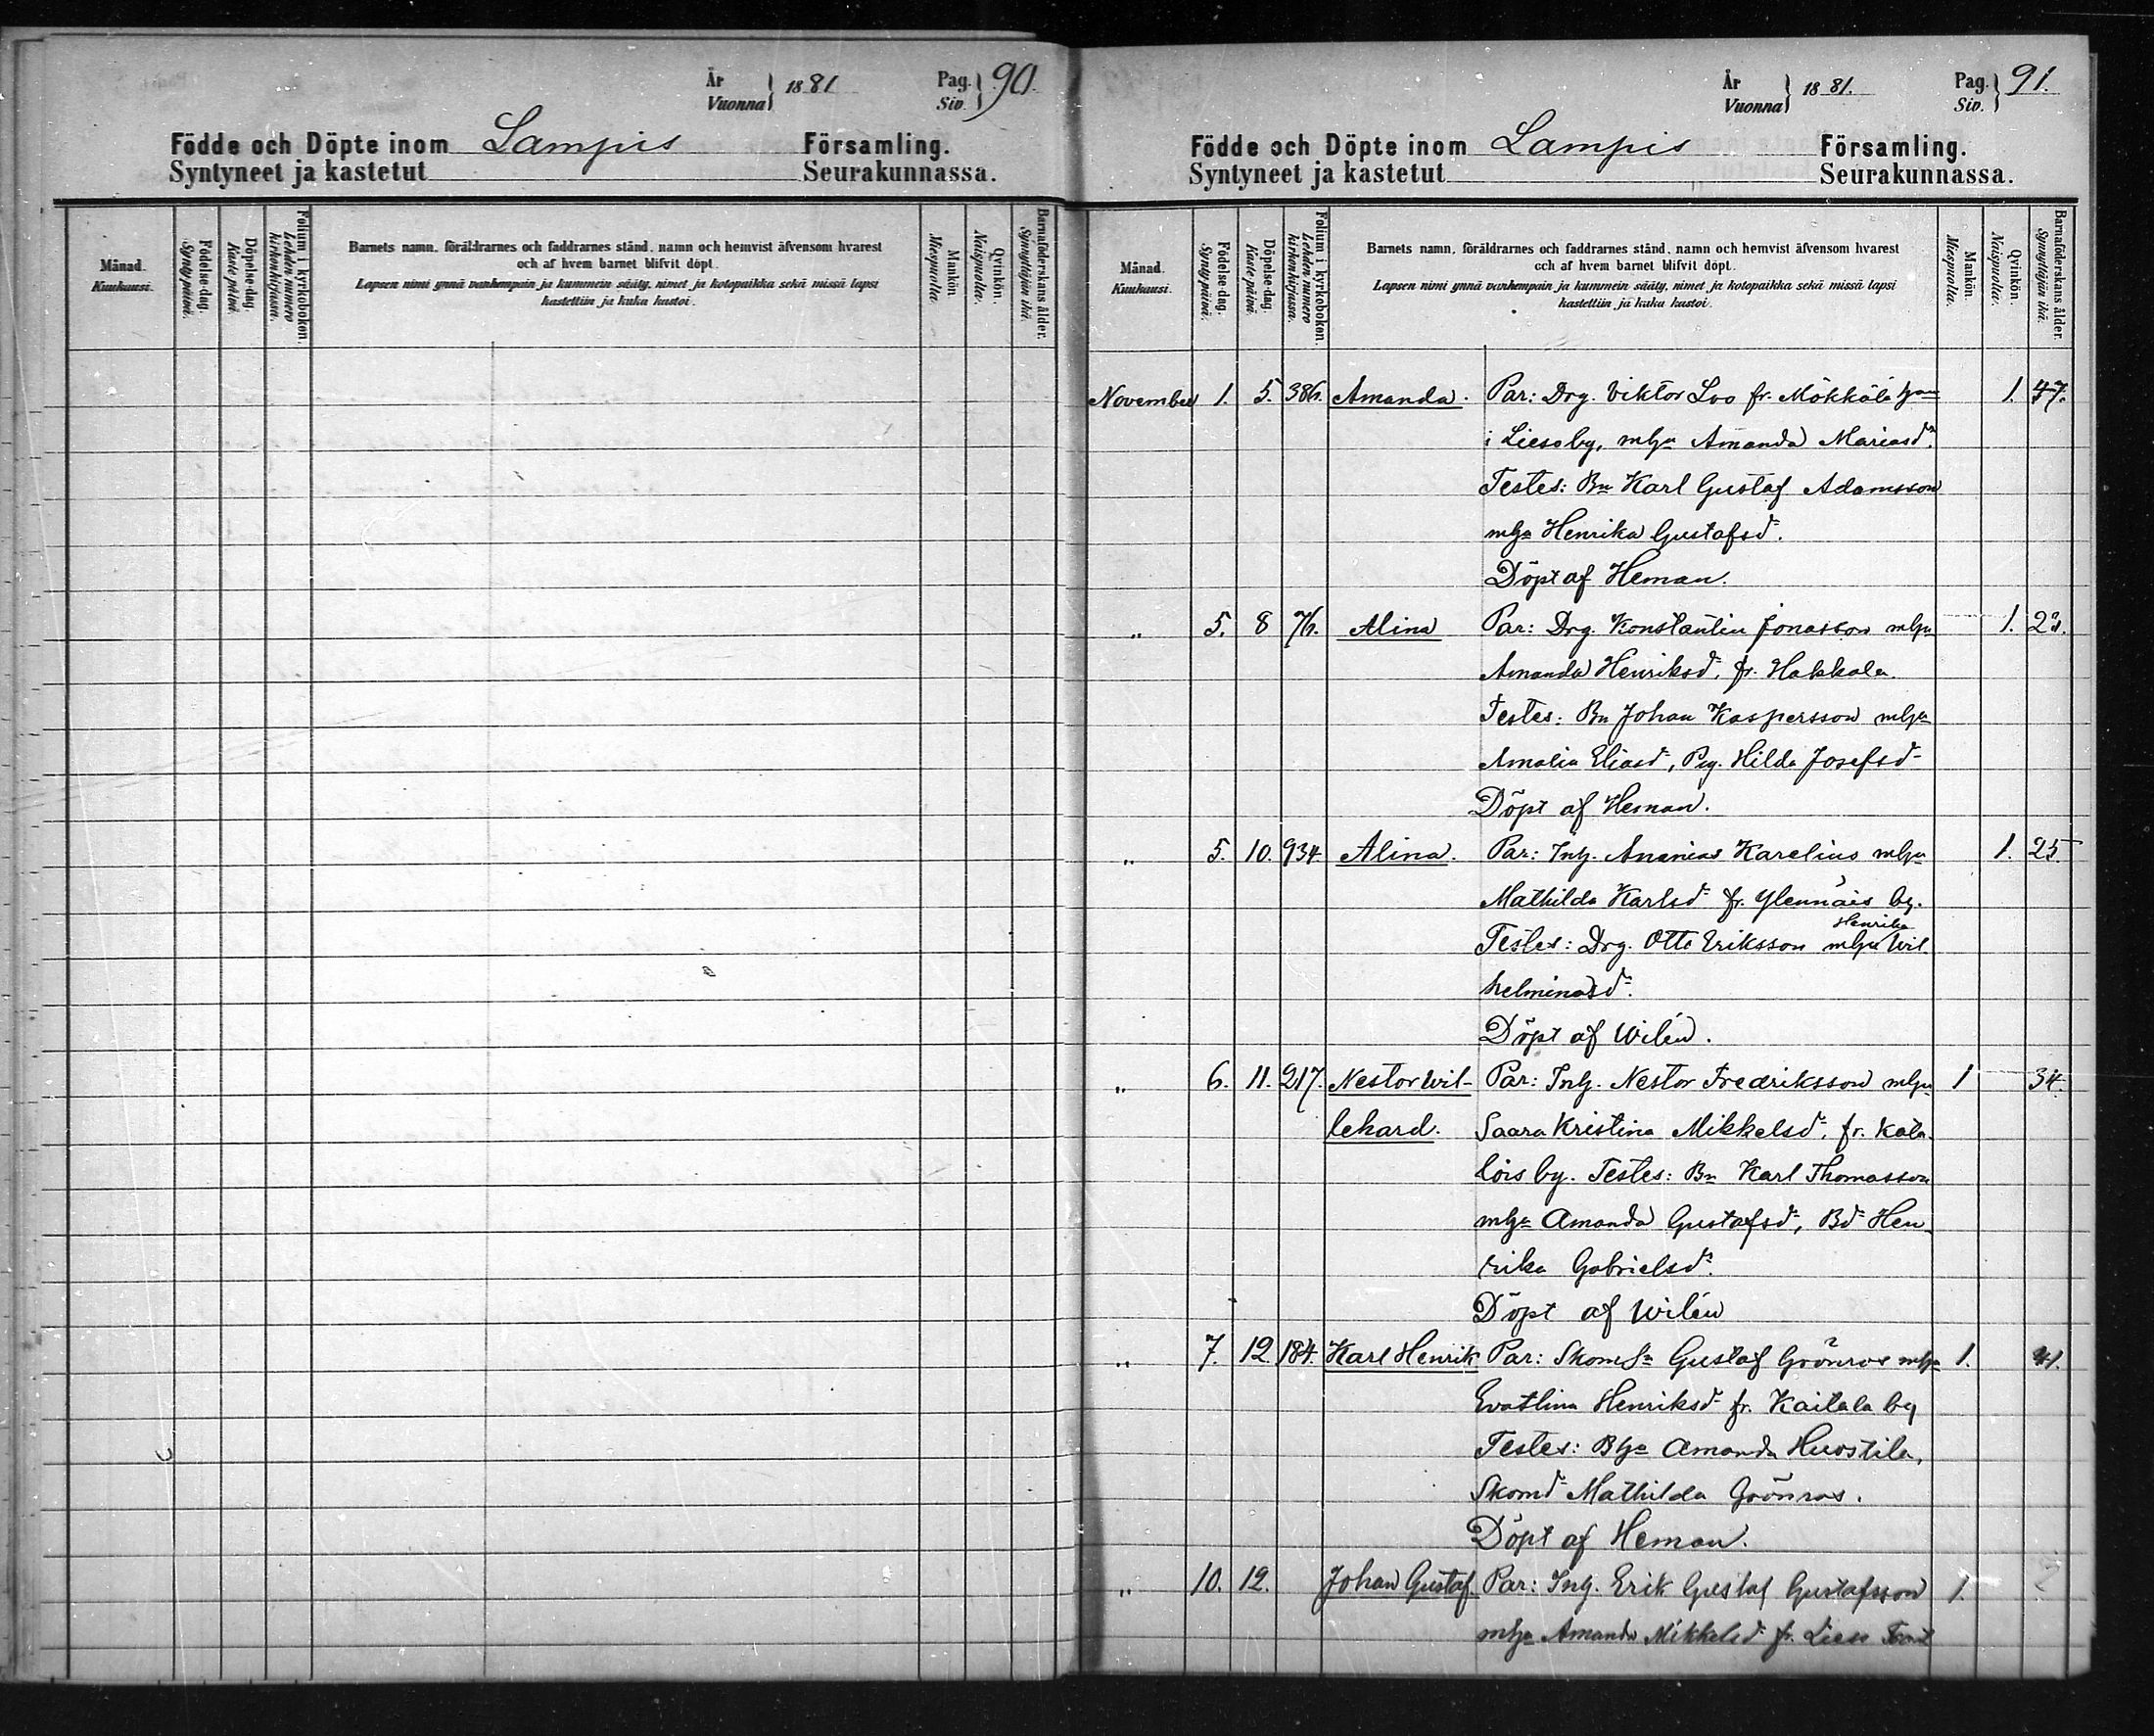 År
Vuonna } 1881 Pag.
Siv. } 90.
Födde och Döpte inom Lampis Församling.
Syntyneet ja kastetut Seurakunnassa.
Månad.
Kuukausi.
Födelse-dag.
Syntypäivä.
Döpelse-dag.
Kastepäivä.
Folium i kyrkoboken.
Lehden numero
kirkonkirjassa.
Barnets namn, föräldrarnes och faddrarnes stånd, namn och hemvist äfvensom hvarest
och af hvem barnet blifvit döpt.
Lapsen nimi ynnä vanhempain ja kummein sääty, nimet ja kotopaikka sekä missä lapsi
kastettiin ja kuka kastoi.
Mankön.
Miespuolia.
Qvinkön.
Naispuolia.
Barnaföderskans ålder.
Synnyttäjän ikä.
År
Vuonna } 1881. Pag.
Siv. } 91.
Födde och Döpte inom Lampis Församling.
Syntyneet ja kastetut Seurakunnassa.
Månad.
Kuukausi.
Födelse-dag.
Syntypäivä.
Döpelse-dag.
Kastepäivä.
Folium i kyrkoboken.
Lehden numero
kirkonkirjassa.
Barnets namn, föräldrarnes och faddrarnes stånd, namn och hemvist äfvensom hvarest
och af hvem barnet blifvit döpt.
Lapsen nimi ynnä vanhempain ja kummein sääty, nimet ja kotopaikka sekä missä lapsi
kastettiin ja kuka kastoi.
Mankön.
Miespuolia.
Qvinkön.
Naispuolia.
Barnaföderskans ålder.
Synnyttäjän ikä.
November 1. 5. 386. Amanda. Par: Drg. Viktor Loo fr. Mökkälä 1.
i Lieso by, mhu Amanda Mariasdr.
Testes: Bn Karl Gustaf Adamsson
mhu Henrika Gustafsdr.
Döpt af Heman.
„ 5. 8 76. Alina Par: Drg. Konstantin Jonasson mhu 1.
Amanda Henriksdr. fr. Hakkala.
Testes: Bn Johan Kaspersson mhu
Amalia Eliasdr, Pig. Hilda Josefsdr
Döpt af Heman.
„ 5. 10. 934. Alina. Par: Inh. Ananias Karelius mhu 1. 25
Mathilda Karlsdr fr. Ylennäis by.
Henrika
Testes: Drg. Otto Eriksson mhu Wil
helminasdr.
Döpt af Wilén.
„ 6. 11. 217. Nestor Wil- Par: Inh. Nestor Fredriksson mhu 1 34.
lehard. Saara Kristina Mikkelsdr. fr. Kata-
lois by. Testes: Bn Karl Thomasson
mhu Amanda Gustafsdr, Bdr Hen
rika Gabrielsdr.
Döpt af Wilén
„ 7. 12. 184. Karl Henrik Par: Gustaf Grönros mhu 1. 41.
Evastina Henriksdr fr. Kaitala by
Testes: Bhu Amanda Huostila,
Skomdr Mathilda Grönros.
Döpt af Heman.
„ 10. 12. Johan Gustaf. Par: Inh. Erik Gustaf Gustafsson 1.
mhu Amanda Mikkelsdr fr. Lieso